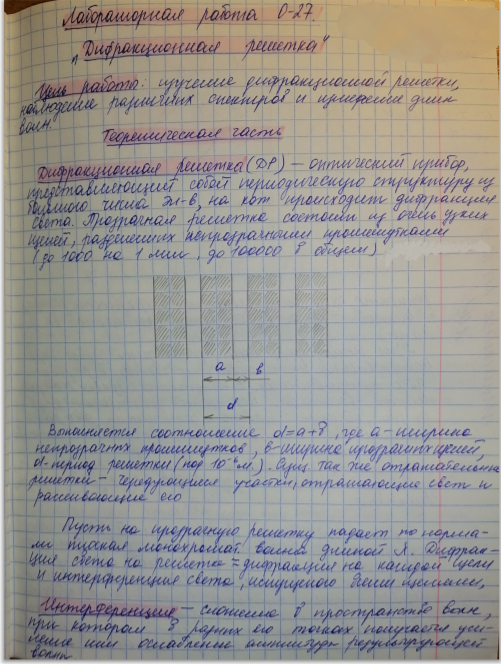 Лабораторная работа О-27.
"Дифракционная решетка"
Цель работы: изучение дифракционной решетки,
наблюдение различных спектров и измерение длин
волн.
Теоретическая часть
Дифракционная решетка (ДР) — оптический прибор,
представляющий собой периодическую структуру из
большого числа эл-в, на кот происходит дифракция
света. Прозрачная решетка состоит из очень узких
щелей, разделенных непрозрачными промежутками
(до 1000 на 1 мм, до 100000 в общем)
a в
d
Выполняется соотношение d=a+в, где a-ширина
непрозрачных промежутков, в-ширина прозрачных щелей,
d-период решетки (пор 10⁻⁶м). Сущ. так же отражательные
решетки — чередующиеся участки, отражающие свет и
рассеивающие его
Пусть на прозрачную решетку падает по норма-
ли плоская монохромат. волна длиной λ. Дифрак-
ция света на решетке = дифракция на каждой щели
и интерференция света, испущенного всеми щелями.
Интерференция — сложение в пространстве волн,
при котором в разных его точках получается уси-
ление или ослабление амплитуды результирующей
волны